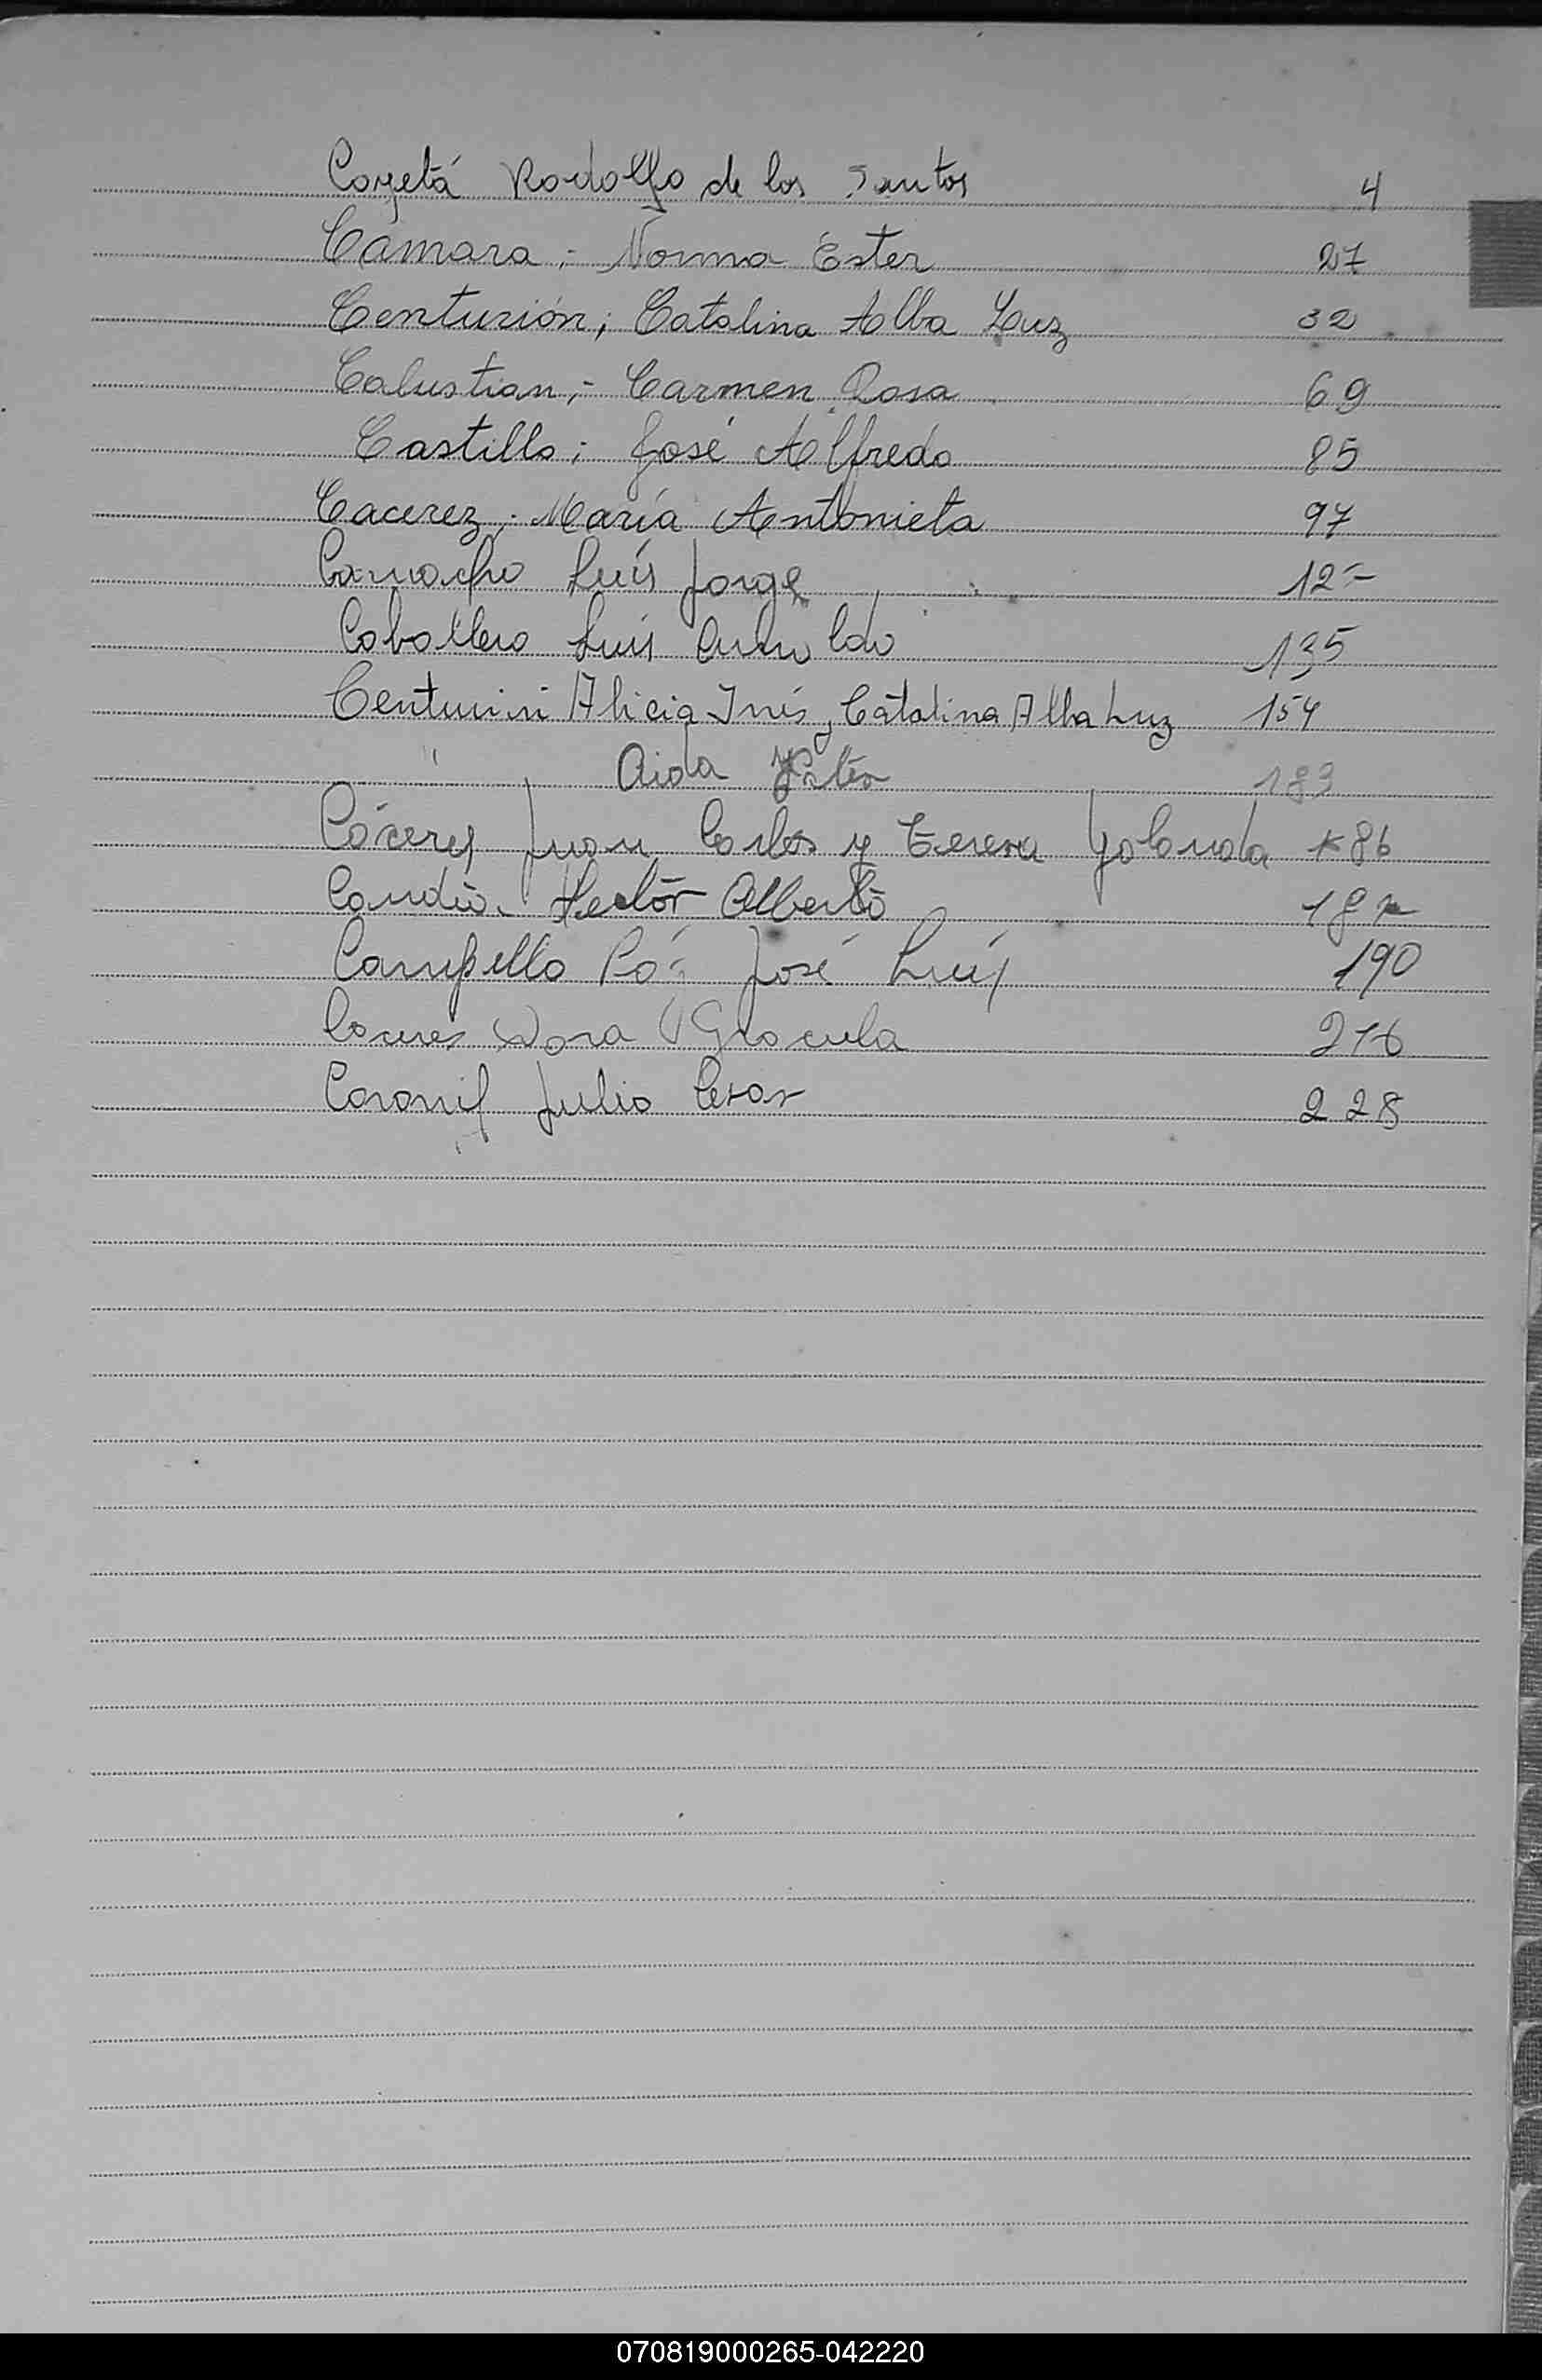 Cayetá Rodolfo de los Santos 4
Cámara:- Norma Ester 27
Centurión; Catalina Alba Luz 32
Calustian;- Carmen Rosa 69
Castillo; José Alfredo 85
Cacerez; María Antonieta 97
Camacho Luís Jorge 12
Caballero Luis 135
Alicia Inés, Catalina Alba Luz 154
" Aida 183
Cáceres Juan Carlos y Teresa Yolanda 86
Candia. Hector Alberto 18
Campello José Luís 190
Caceres Dora 216
Coronil Julio Cesar 228
070819000265-042220